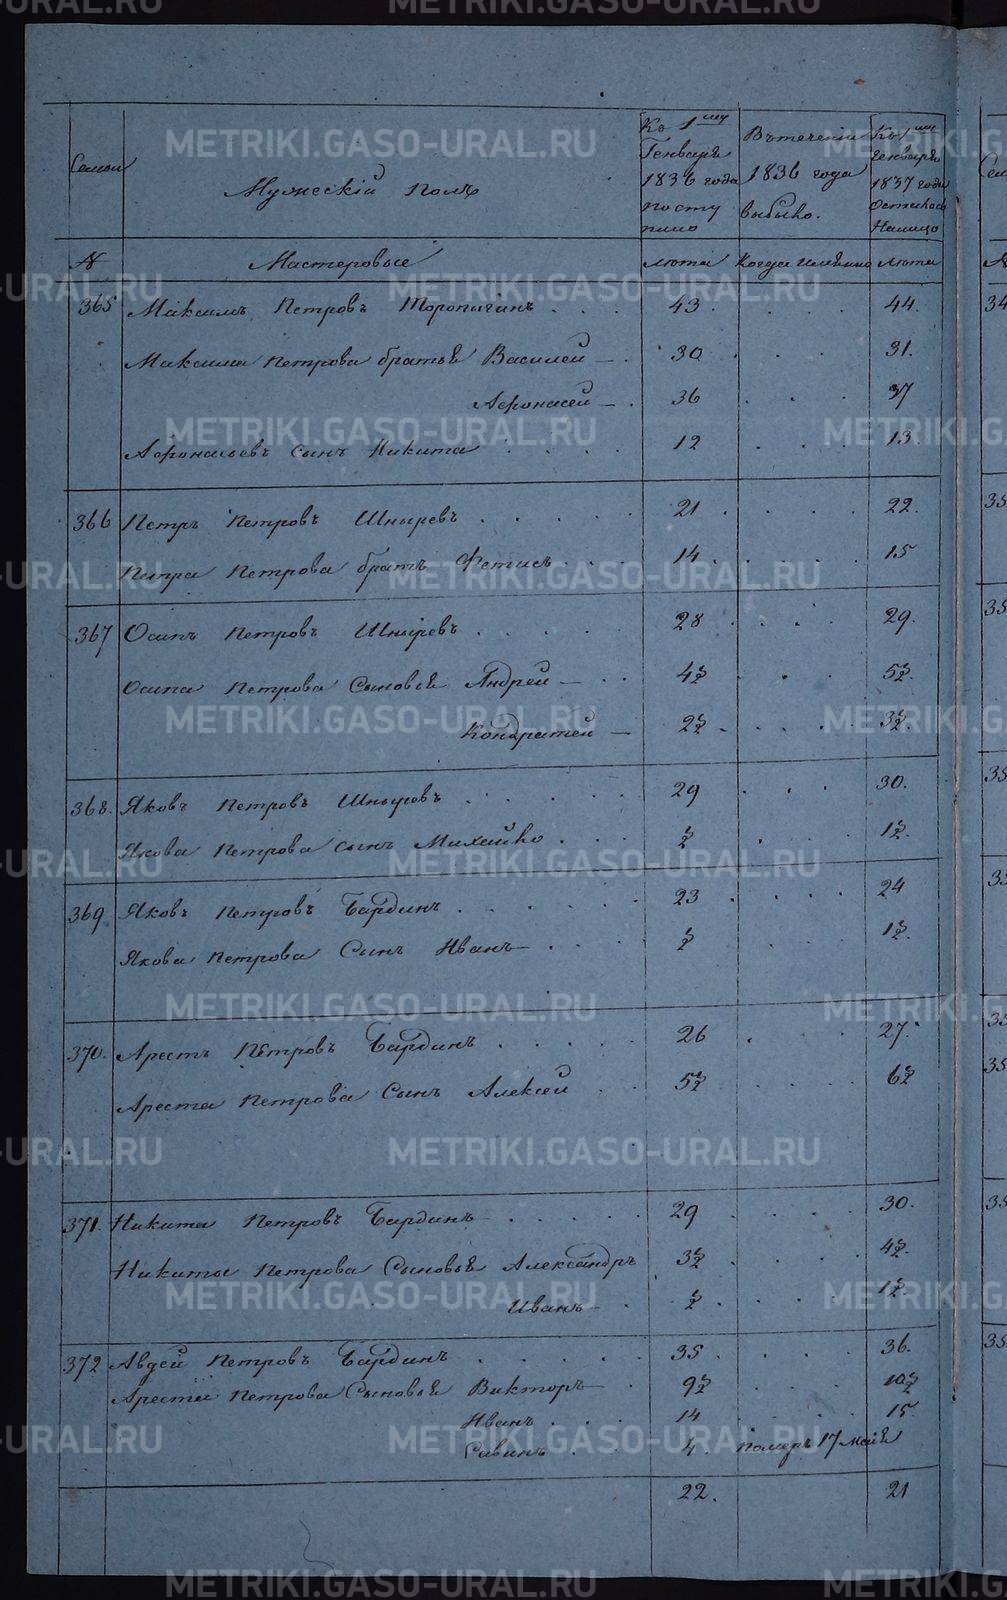 METRIKI.GASO-URAL.RU
Семьи
Мужескій полъ
Къ 1му Генваръ 1836 года поступило
Въ теченіи 1836 года выбыло.
Къ 1му генваръ 1837 года осталось налицо
№
Мастеровые
лѣта
Когда именно
лѣта
365 Максимъ Петровъ Торопыгинъ . . . 43 . . . . 44.
Максима Петрова братья Василей — 30 . . . 31.
Афонасей — . 36 . . . 37
Афонасьевъ сынъ Никита . . . . 12 . . . 13.
366 Петръ Петровъ Шныревъ . . . . . 21 . . . . 22.
Петра Петрова братъ Фетисъ . . . 14 . . . . 15
367 Осипъ Петровъ Шныревъ . . . . 28 . . . . 29.
Осипа Петрова сыновья Андрей — . . 4½ . . . 5½.
Кондратей — 2½ . . . . 3½.
368. Яковъ Петровъ Шныревъ . . . . . 29 . . . 30.
Якова Петрова сынъ Михайло . . . ½ . . . 1½.
369 Яковъ Петровъ Бардинъ . . . . . 23 . . . . 24
Якова Петрова Сынъ Иванъ — . . . ½ . . . 1½.
370. Арестъ Петровъ Бардинъ . . . . . 26 . . . . 27.
Ареста Петрова Сынъ Алексей . . 5½ . . . 6½
371. Никита Петровъ Бардинъ . . . . . 29 . . . . 30.
Никиты Петрова Сыновья Александръ 3½ . . . . 4½.
Иванъ — . ½ . . . . 1½.
372 Авдей Петровъ Бардинъ . . . . . 35 . . . . 36.
Арестеи Петрова Сыновья Викторъ — . 9½ . . . . 10½
Иванъ . . . . 14 . . . . 15
Савинъ . . . 4 . померъ 17 маія
22. 21